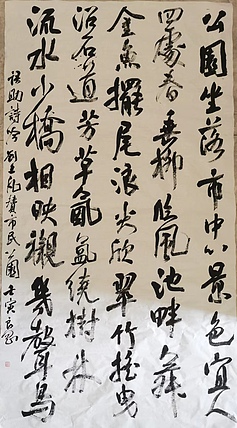 公園坐落市中心景色宜人
四處春垂柳臨風池畔舞
金魚擺尾浪尖欣翠竹搖曳
沿石道芳草氤氳繞樹林
流水小橋相映襯幾聲鳥
語助詩吟 劉士凡贊市民公園 壬寅